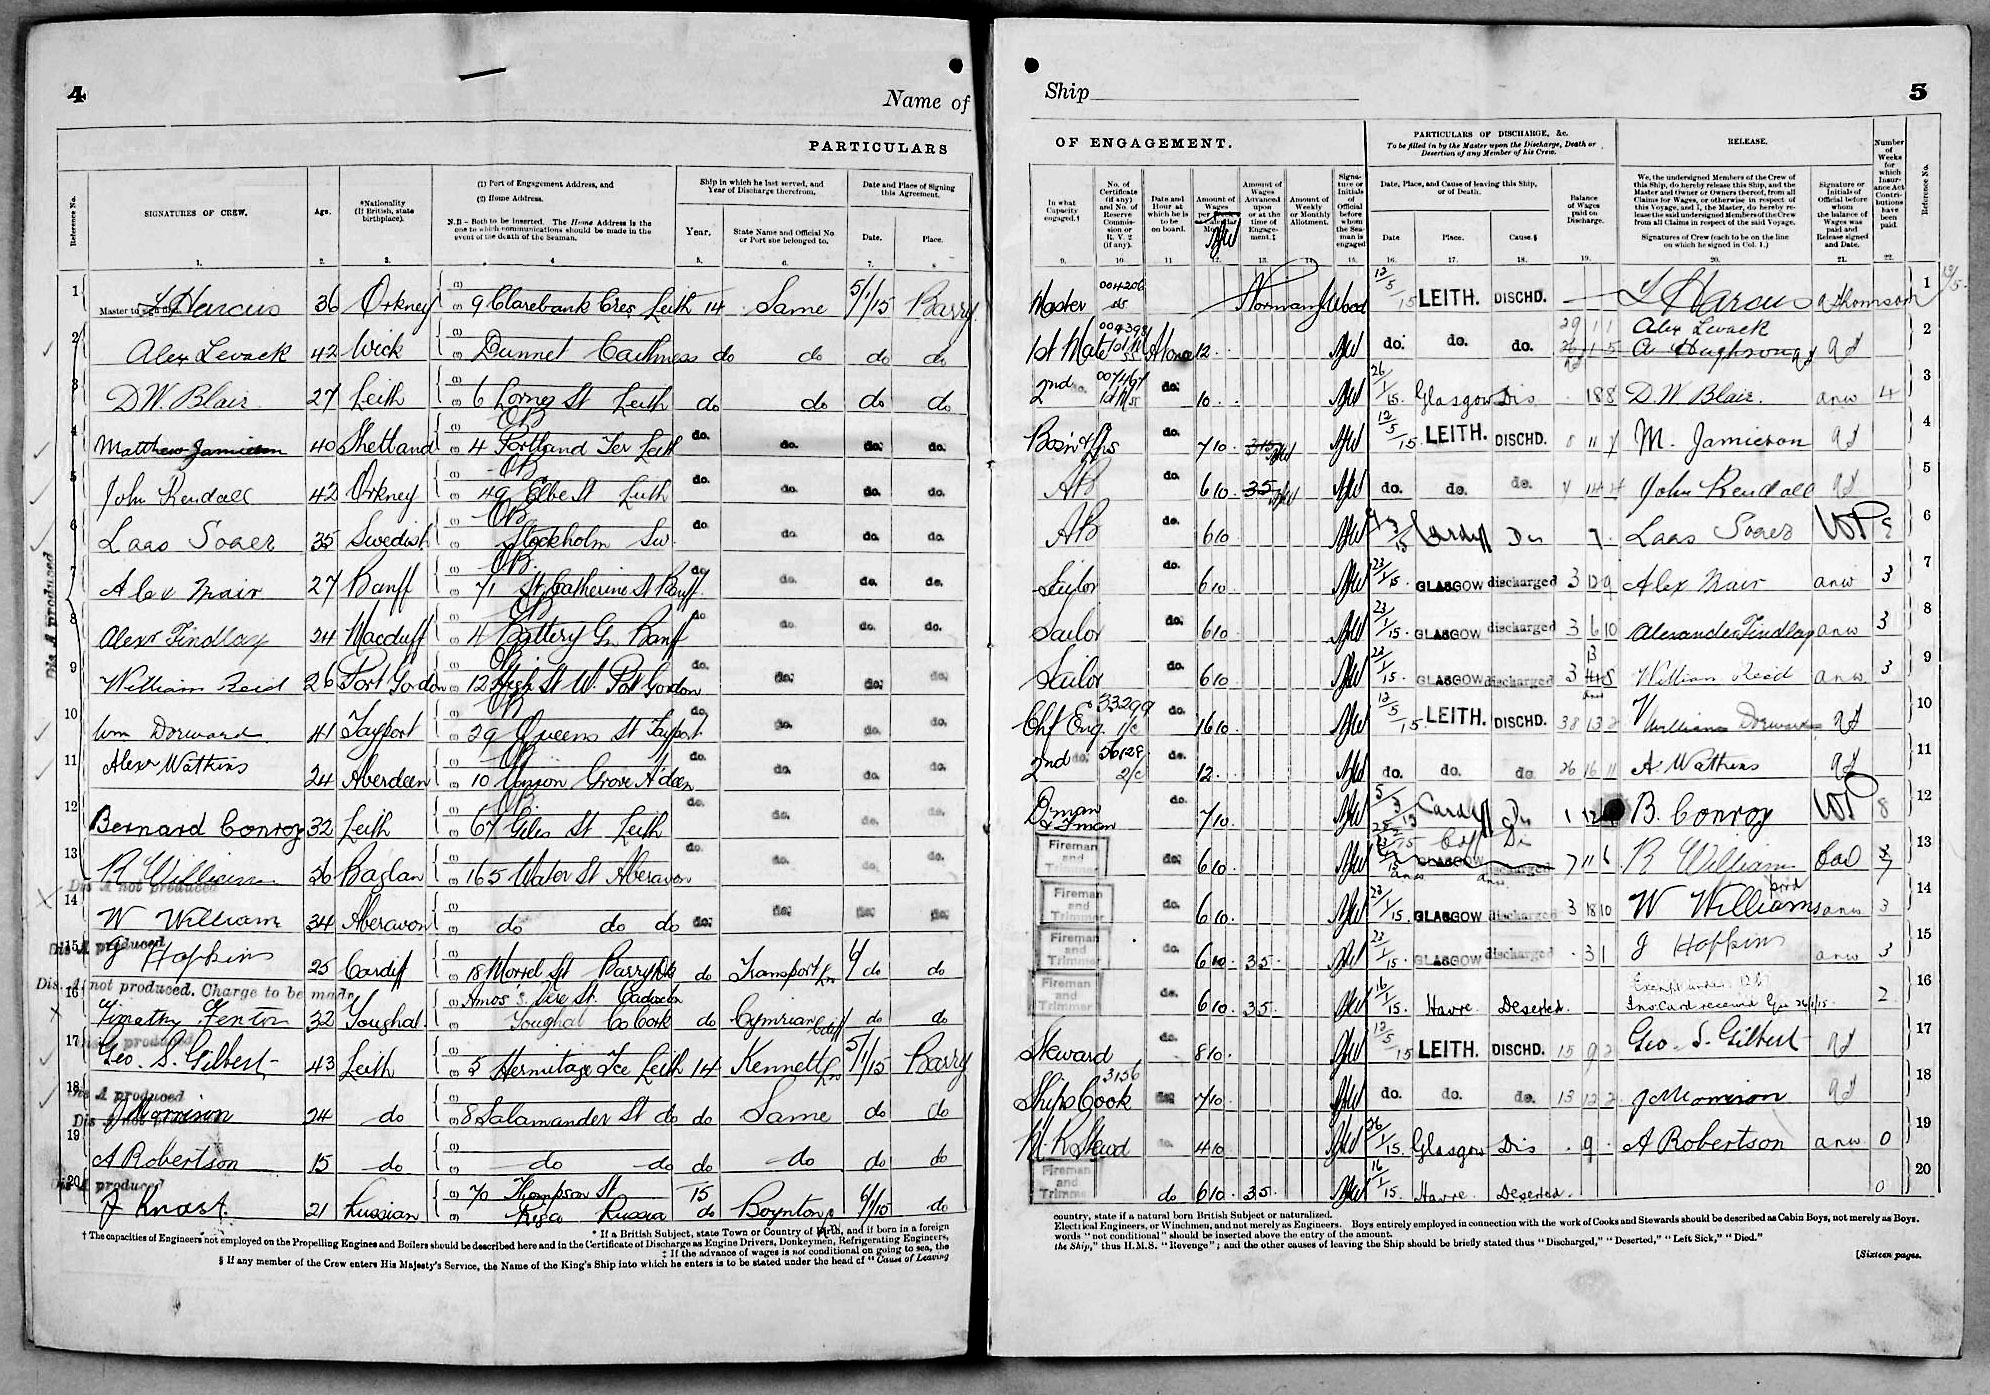 4
Name of
PARTICULARS
Reference No.
SIGNATURES OF CREW.
Age.
*Nationality
(If British, state
birthplace).
(1) Port of Engagement Address, and
(2) Home Address.
N.B - Both to be inserted. The Home Address is the
one to which communications should be made in the
event of the death of the Seaman.
Ship in which he last served, and
Year of Discharge therefrom.
Year.
State Name and Official No.
or Port she belonged to.
Date and Place of Signing
this Agreement.
Date.
Place.
1. 2. 3. 4 5. 6. 7. 8
1 Master to sign first J Harcus 36 Orkney 9 Clarebank Cres Leith 14 Same 5/1/15 Barry
2 Alex Levack 42 Wick Dunnet Caithness do do do do
3 D.W. Blair 27 Leith 6 Lorne St Leith do do do do
4 Matthew Jamieson 40 Shetland 4 Portland Ter Leith do. do. do. do.
5 John Rendall 42 Orkney 49 Elbe St Leith do. do. do. do.
6 Laas Soaer 35 Swedish Stockholm Sw. do. do. do. do.
7 Alex Mair 27 Banff 71 St Catherine St Banff do. do. do. do.
8 Alexr Findlay 24 Macduff 4 Battery Gn. Banff do. do. do. do.
9 William Reid 26 Port Gordon 12 High St W. Port Gordon do. do. do. do.
10 Wm Dorward 41 Tayport 29 Queens St Tayport do. do. do. do.
11 Alexr Watkins 24 Aberdeen 10 Union Grove Adeen do. do. do. do.
12 Bernard Conroy 32 Leith 67 Giles St Leith do. do. do. do.
13 R William 36 Baglan 165 Water St Aberavon do. do. do. do.
Dis A not produced
14 W William 34 Aberavon do do do do. do. do. do.
Dis A produced
15 J Hopkins 25 Cardiff 18 Morrel St Barry Dk do Transport Ln 4 do do
Dis. A not produced. Charge to be made
16 Timothy Fenton 32 Youghal Youghal Co Cork do Cymrian Cdiff do do
17 Geo. S. Gilbert 43 Leith 5 Hermitage Tce Leith 14 Kennett Ln 5/1/15 Barry
Dis A produced
18 J Morrison 24 do 8 Salamander St do do Same do do
Dis A not produced
19 A Robertson 15 do do do do do do do
Dis A produced
20 J Knast. 21 Russian 70 Thompson St 15 Boynton 6/1/15 do
Riga Russia do
Dis A produced
* If a British Subject, state Town or Country of birth, and if born in a foreign
† The capacities of Engineers not employed on the Propelling Engines and Boilers should be described here and in the Certificate of Discharge as Engine Drivers, Donkeymen, Refrigerating Engineers,
‡ If the advance of wages is not conditional on going to sea, the
§ If any member of the Crew enters His Majesty's Service, the Name of the King's Ship into which he enters is to be stated under the head of "Cause of Leaving
Ship
5
OF ENGAGEMENT.
PARTICULARS OF DISCHARGE, &c.
To be filled in by the Master upon the Discharge, Death or
Desertion of any Member of his Crew.
RELEASE.
Number
of
Weeks
for
which
Insur-
ance Act
Contri-
butions
have
been
paid.
Reference No.
In what
Capacity
engaged.†
No. of
Certificate
(if any)
and No. of
Reserve
Commis-
sion or
R. V. 2
(if any).
Date and
Hour at
which he is
to be
on board.
Amount of
Wages
per
Calendar
Month
Amount of
Wages
Advanced
upon
or at the
time of
Engage-
ment.‡
Amount of
Weekly
or Monthly
Allotment.
Signa-
ture or
Initials
of
Official
before
whom
the Sea-
man is
engaged
Date, Place, and Cause of leaving this Ship,
or of Death.
Date
Place.
Cause.§
Balance
of Wages
paid on
Discharge.
We, the undersigned Members of the Crew of
this Ship, do hereby release this Ship, and the
Master and Owner or Owners thereof, from all
Claims for Wages, or otherwise in respect of
this Voyage, and I, the Master, do hereby re-
lease the said undersigned Members of the Crew
from all Claims in respect of the said Voyage.
Signatures of Crew (each to be on the line
on which he signed in Col. 1.)
Signature or
Initials of
Official before
whom
the balance of
Wages was
paid and
Release signed
and Date.
9. 10 11. 12. 13. 14. 15. 16. 17. 18. 19. 20. 21. 22.
Master 004206 Norman J Wood 12/5/15 LEITH. DISCHD. J Harcus A Thomson 1
1st Mate At once 12 do. do. do. 29 1 1 Alex Levack 2
2nd do. do. 10 26/1/15. Glasgow Dis 18 8 D. W. Blair. anw 4 3
Bosn & Lps do. 7 10 12/5/15 LEITH. DISCHD. 8 11 7 M. Jamieson 4
AB do. 6 10 35 do. do. do. John Rendall 5
AB do. 6 10 Cardiff Dis 7 Laas Soaer 6
Sailor do. 6 10 23/1/15. GLASGOW discharged 3 12 9 Alex Mair anw 3 7
Sailor do. 6 10 23/1/15. GLASGOW discharged 3 6 10 Alexander Findlay anw 3 8
Sailor do. 6 10 23/1/15. GLASGOW discharged 3 13 8 William Reid anw 3 9
Chf Eng. 33299 1/c do. 16 10 12/5/15 LEITH. DISCHD. 38 13 2 William Dorward 10
2nd do. 36129 2/c do. 12 do. do. do. 26 16 11 A. Watkins 11
D.man & F.man do. 7 10 5/3/15 Cardiff Dis 1 12 B. Conroy 8 12
Fireman and Trimmer do. 6 10 GLASGOW discharged 7 11 6 R William 7 13
Fireman and Trimmer do. 6 10 23/1/15. GLASGOW discharged 3 18 10 W Williams anw 3 14
Fireman and Trimmer do. 6 10 35 23/1/15. GLASGOW discharged 3 1 J Hopkins anw 3 15
Fireman and Trimmer do. 6 10 35 16/1/15. Havre Deserted. 2 16
Steward do. 8 10 12/5/15 LEITH. DISCHD. 15 9 2 Geo. S. Gilbert 17
Ships Cook 3156 do. 7 10 do. do. do. 13 12 2 J Morrison 18
M. R. Stewd do. 4 10 26/1/15. Glasgow Dis 9 A Robertson anw 0 19
Fireman and Trimmer do 6 10 35 16/1/15. Havre. Deserted. 0 20
country, state if a natural born British Subject or naturalized.
Electrical Engineers, or Winchmen, and not merely as Engineers. Boys entirely employed in connection with the work of Cooks and Stewards should be described as Cabin Boys, not merely as Boys.
words "not conditional" should be inserted above the entry of the amount.
the Ship," thus H.M.S. "Revenge"; and the other causes of leaving the Ship should be briefly stated thus "Discharged," "Deserted," "Left Sick," "Died."
[Sixteen pages.